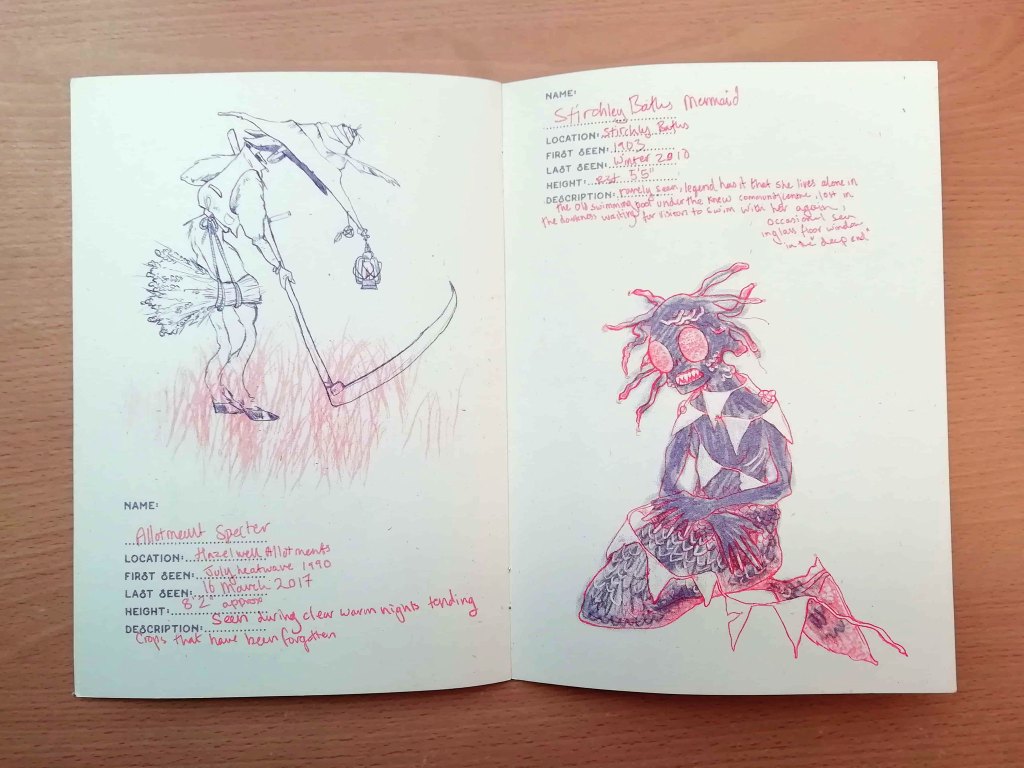 NAME:
Allotment Specter
LOCATION: Hazelwell Allotments
FIRST SEEN: July heatwave 1990
LAST SEEN: 16 March 2017
HEIGHT: 8'2" approx
DESCRIPTION: Seen during clear warm nights tending
Crops that have been forgotten
NAME:
Stirchley Baths Mermaid
LOCATION: Stirchley Baths
FIRST SEEN: 1903
LAST SEEN: Winter 2010
HEIGHT: 5'5"
DESCRIPTION: rarely seen, legend has it that she lives alone in
the old swimming pool under the knew community centre, lost in
the darkness waiting for visitors to swim with her again,
occasional seen
in glass floor window
in the "deep end"